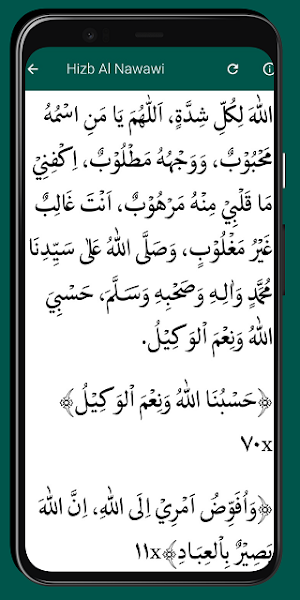 Hizb Al Nawawi
اللهَ لِكُلِّ شِدَّةٍ، اَللّٰهُمَّ يَا مَنِ اسْمُهُ
مَحْبُوْبٌ، وَوَجْهُهُ مَطْلُوْبٌ، اِكْفِنِيْ
مَا قَلْبِيْ مِنْهُ مَرْهُوْبٌ، اَنْتَ غَالِبٌ
غَيْرُ مَغْلُوْبٍ، وَصَلَّى اللهُ عَلٰى سَيِّدِنَا
مُحَمَّدٍ وَاٰلِهِ وَصَحْبِهِ وَسَلَّمَ، حَسْبِيَ
اللهُ وَنِعْمَ الْوَكِيْلُ.
﴿حَسْبُنَا اللهُ وَنِعْمَ الْوَكِيْلُ﴾
٧٠x
﴿وَاُفَوِّضُ اَمْرِيْ اِلَى اللهِ، اِنَّ اللهَ
بَصِيْرٌ بِالْعِبَادِ﴾ ١١x